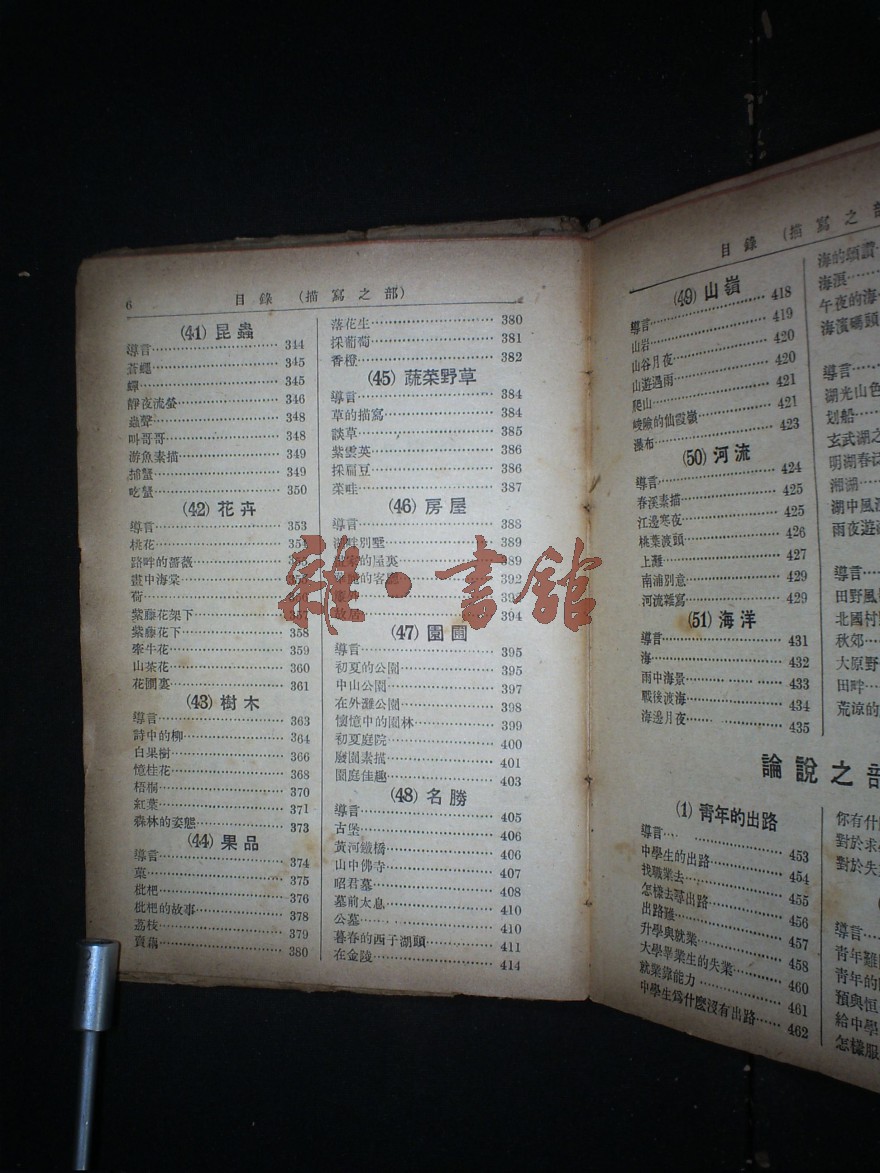 6
目錄 (描寫之部)
(41) 昆蟲
導言 344
蒼蠅 345
蟬 345
靜夜流螢 346
蟲聲 348
叫哥哥 348
游魚素描 349
捕蟹 349
吃蟹 350
(42) 花卉
導言 353
桃花
路畔的薔薇
畫中海棠
荷
紫藤花架下 357
紫藤花下 358
牽牛花 359
山茶花 360
花園裏 361
(43) 樹木
導言 363
詩中的柳 364
白果樹 366
憶桂花 368
梧桐 370
紅葉 371
森林的姿態 373
(44) 果品
導言 374
375
枇杷 376
枇杷的故事 378
荔枝 379
賣藕 380
落花生 380
採葡萄 381
香橙 382
(45) 蔬菜野草
導言 384
草的描寫 384
談草 385
紫雲英 386
採扁豆 386
菜畦 387
(46) 房屋
導言 388
湖畔別墅 389
的屋裏 389
的客廳 392
故居 394
(47) 園圃
導言 395
初夏的公園 395
中山公園 397
在外灘公園 398
懷憶中的園林 399
初夏庭院 400
廢園素描 401
園庭佳趣 403
(48) 名勝
導言 405
古堡 406
黃河鐵橋 406
山中佛寺 407
昭君墓 408
墓前太息 410
公墓 410
暮春的西子湖頭 411
在金陵 414
目錄 (描寫之部
(49) 山嶺
導言 418
山岩 419
山谷月夜 420
山遊遇雨 420
爬山 421
峻險的仙霞嶺 421
瀑布 423
(50) 河流
導言 424
春溪素描 425
江邊寒夜 425
桃葉渡頭 426
上灘 427
南浦別意 429
河流雜寫 429
(51) 海洋
導言 431
海 432
雨中海景 433
戰後渡海 434
海邊月夜 435
論說之部
(1) 青年的出路
導言 453
中學生的出路 454
找職業去 455
怎樣去尋出路 456
出路難 457
升學與就業 458
大學畢業生的失業 460
就業靠能力 461
中學生爲什麼沒有出路 462
海的頌讚
海濱
午夜的海
海濱碼頭
導言
湖光山色
划船
玄武湖之
明湖春泛
湘湖
湖中風
雨夜遊
導言
田野風
北國村
秋郊
大原野
田畔
荒涼的
你有什
對於求
對於失
導言
青年難
青年的
預與恒
給中學
怎樣服
雜·書館